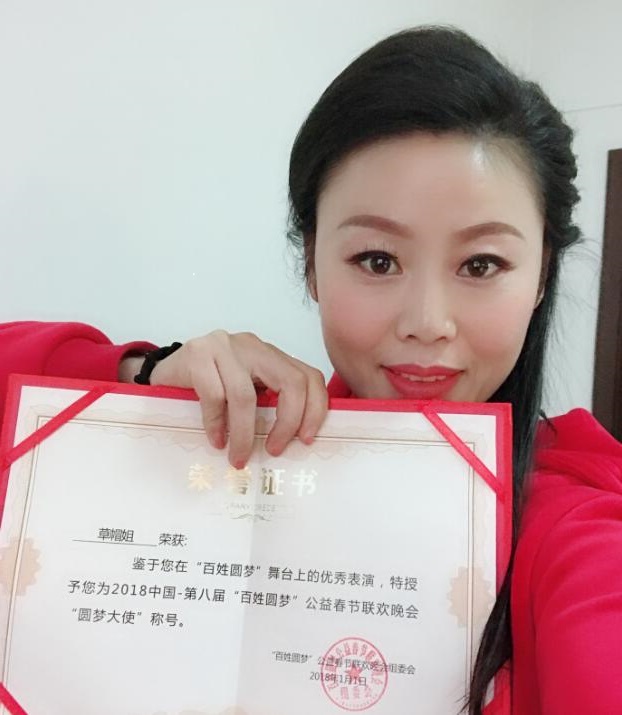 荣誉证书
草帽姐 荣获:
鉴于您在“百姓圆梦”舞台上的优秀表演,特授
予您为2018中国-第八届“百姓圆梦”公益春节联欢晚会
“圆梦大使”称号。
“百姓圆梦”公益春节联欢晚会组委会
2018年1月1日
组委会